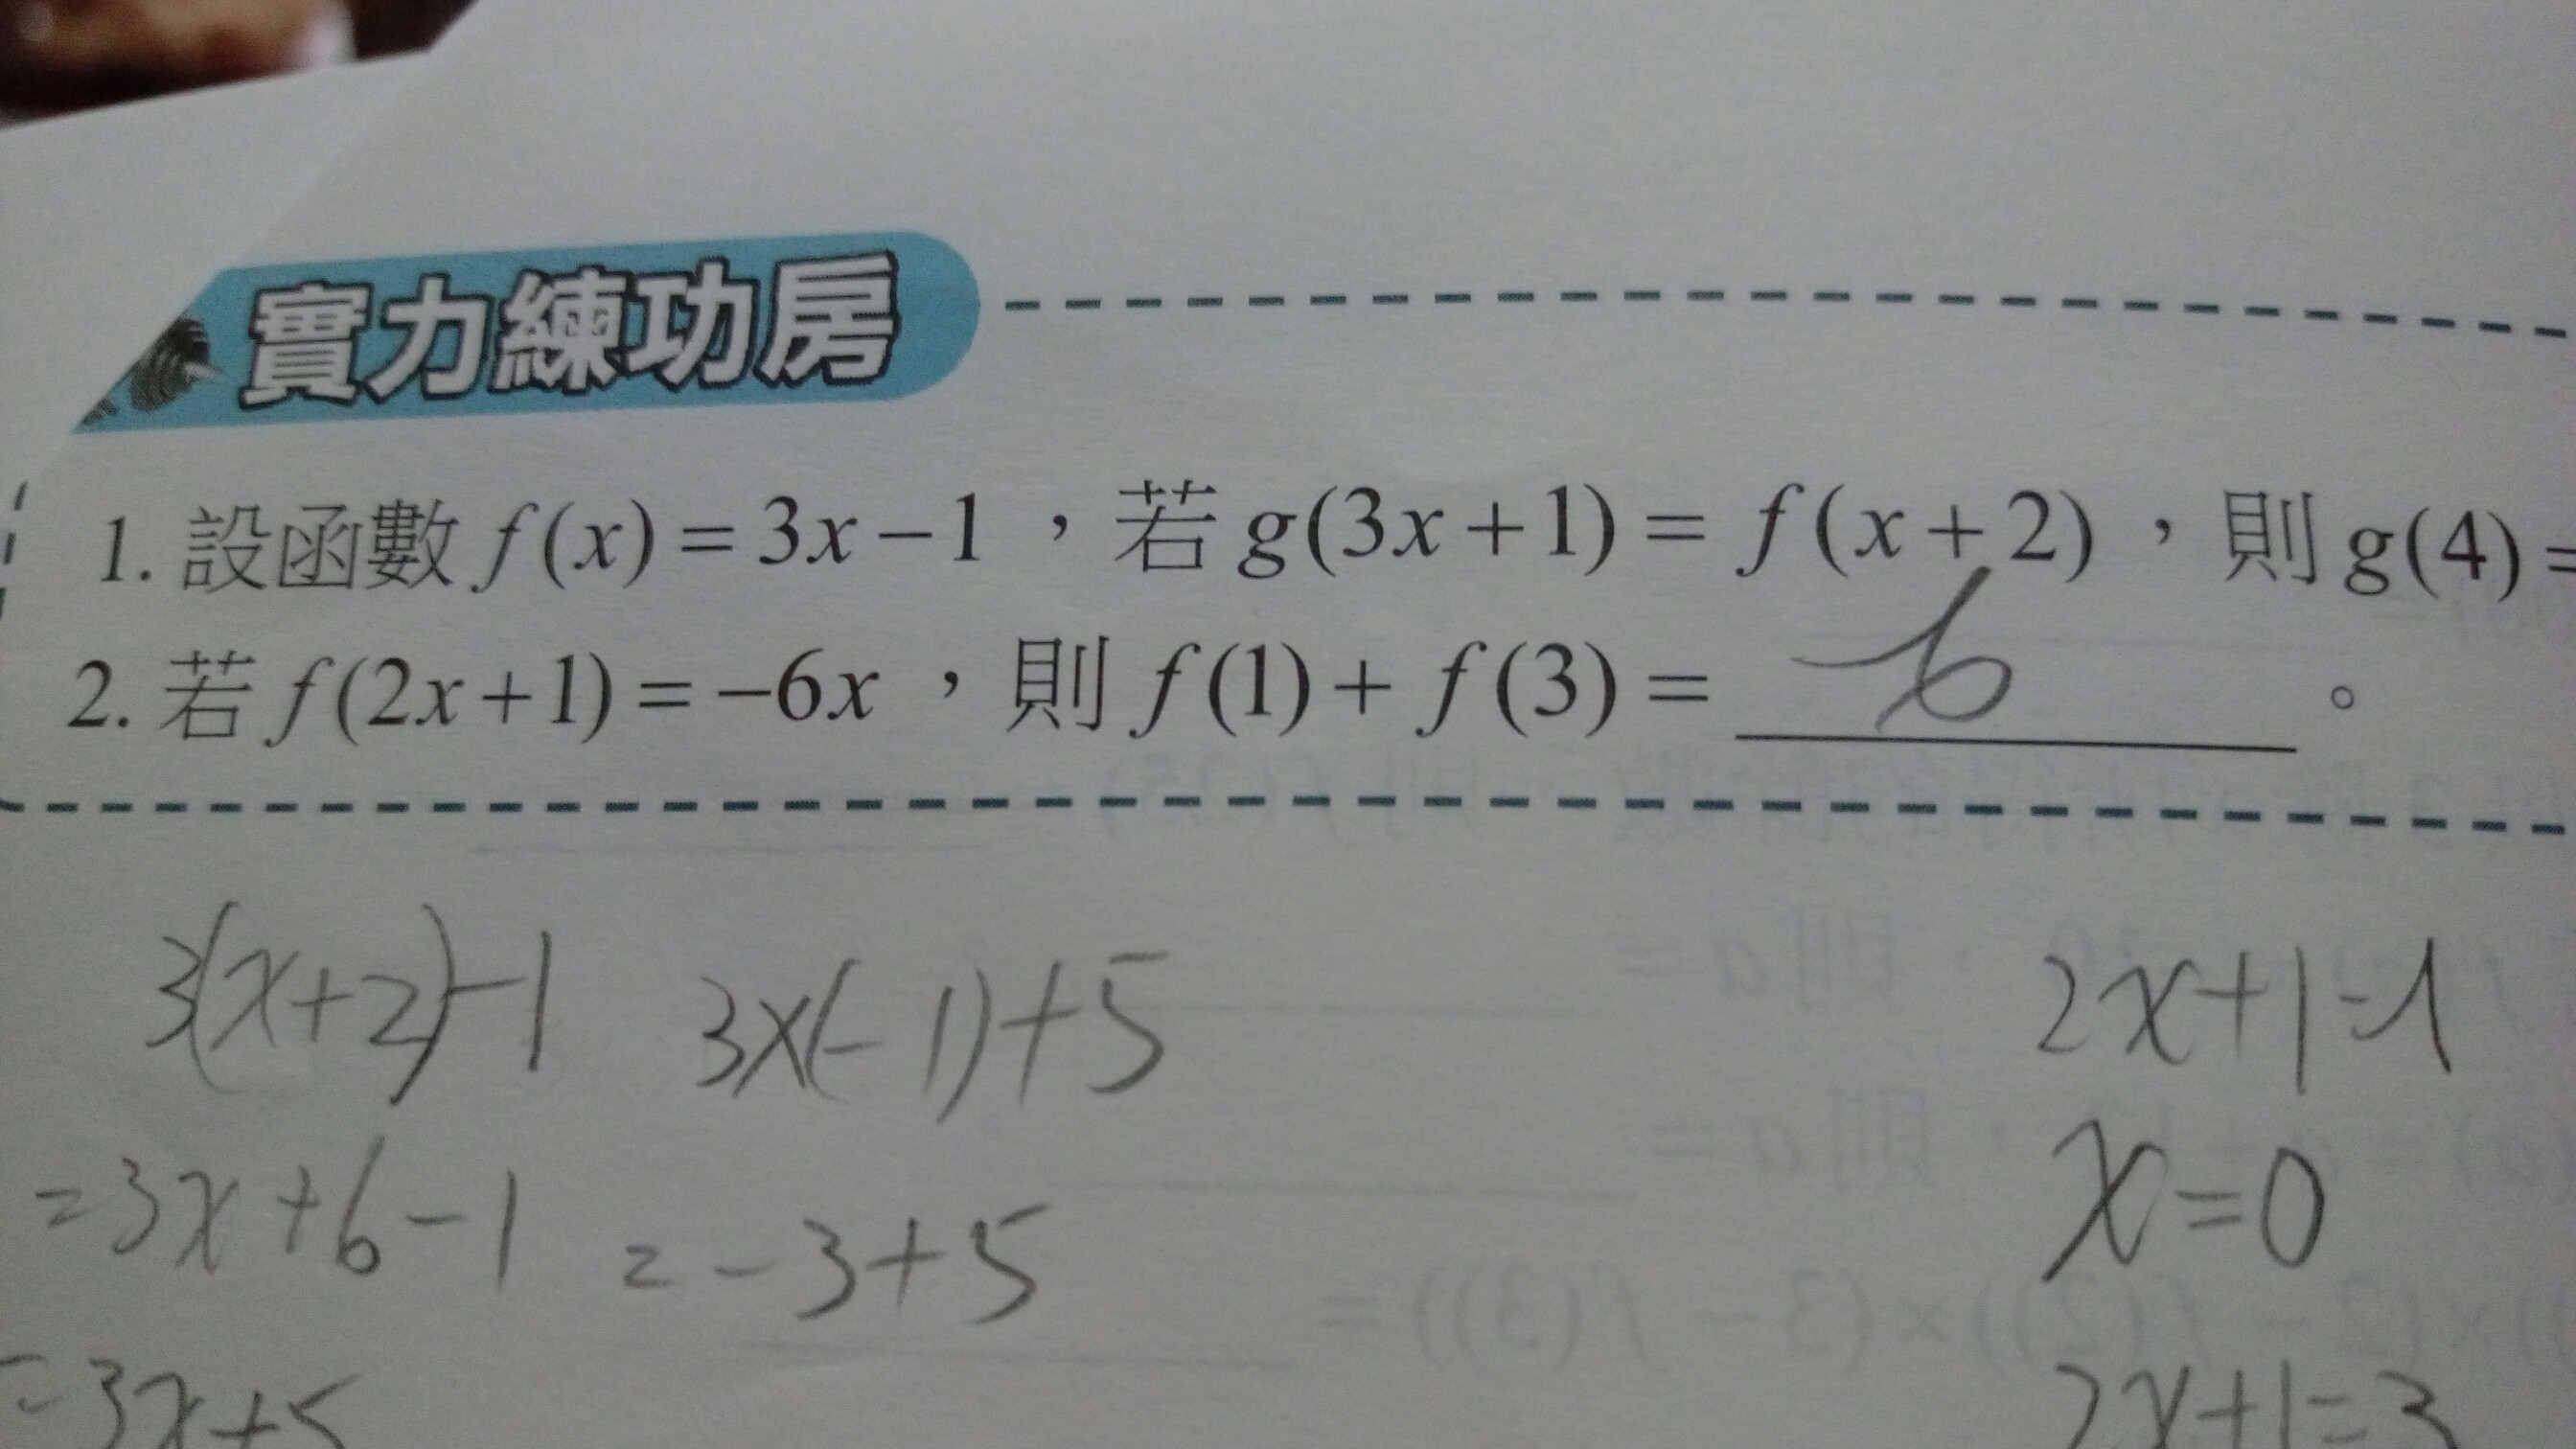 實力練功房
1. 設函數 f(x) = 3x-1，若 g(3x+1) = f(x+2)，則 g(4) =
2. 若 f(2x+1) = -6x，則 f(1) + f(3) = -6。
3(x+2)-1 3x(-1)+5 2x+1=1
=3x+6-1 =-3+5 x=0
=3x+5 2x+1=3